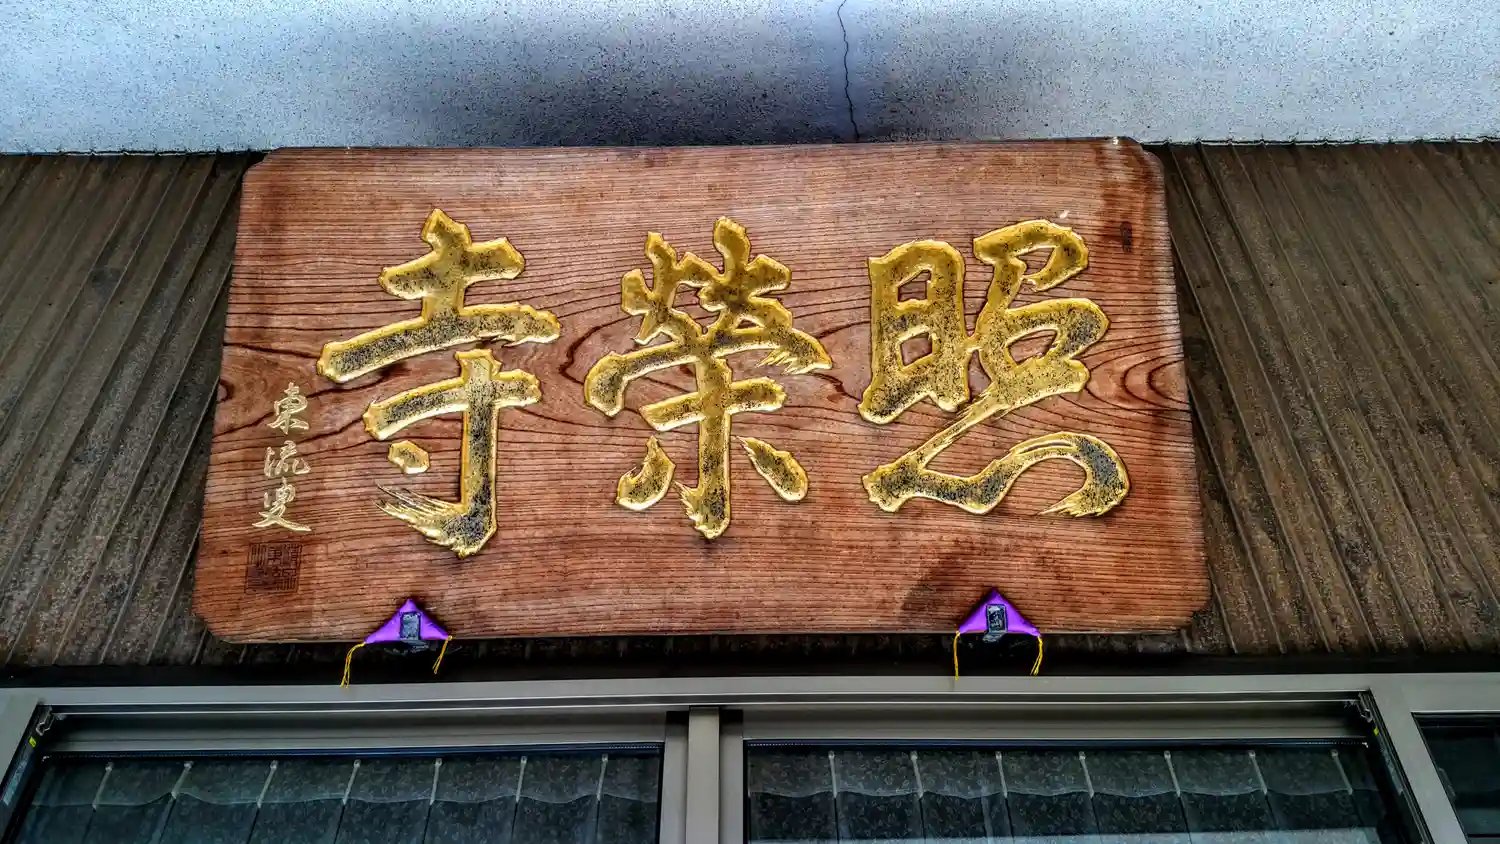 照榮寺
東流叟